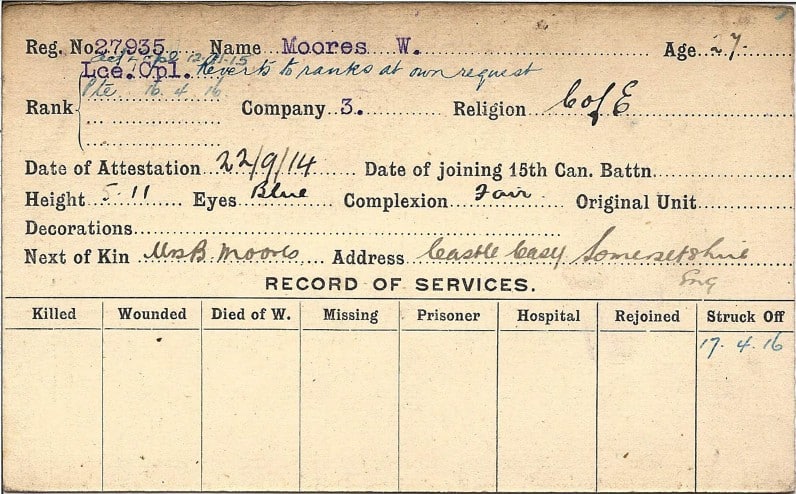 Reg. No 27935 Name Moores W. Age 27
Lce.Cpl. Reverts to ranks at own request
Pte. 16. 4. 16
Rank Company 3. Religion C of E
Date of Attestation 22/9/14 Date of joining 15th Can. Battn.
Height 5.11 Eyes Blue Complexion Fair Original Unit
Decorations
Next of Kin Mrs B Moores Address Castle Casy Somersetshire
Eng
RECORD OF SERVICES.
Killed Wounded Died of W. Missing Prisoner Hospital Rejoined Struck Off
17. 4. 16